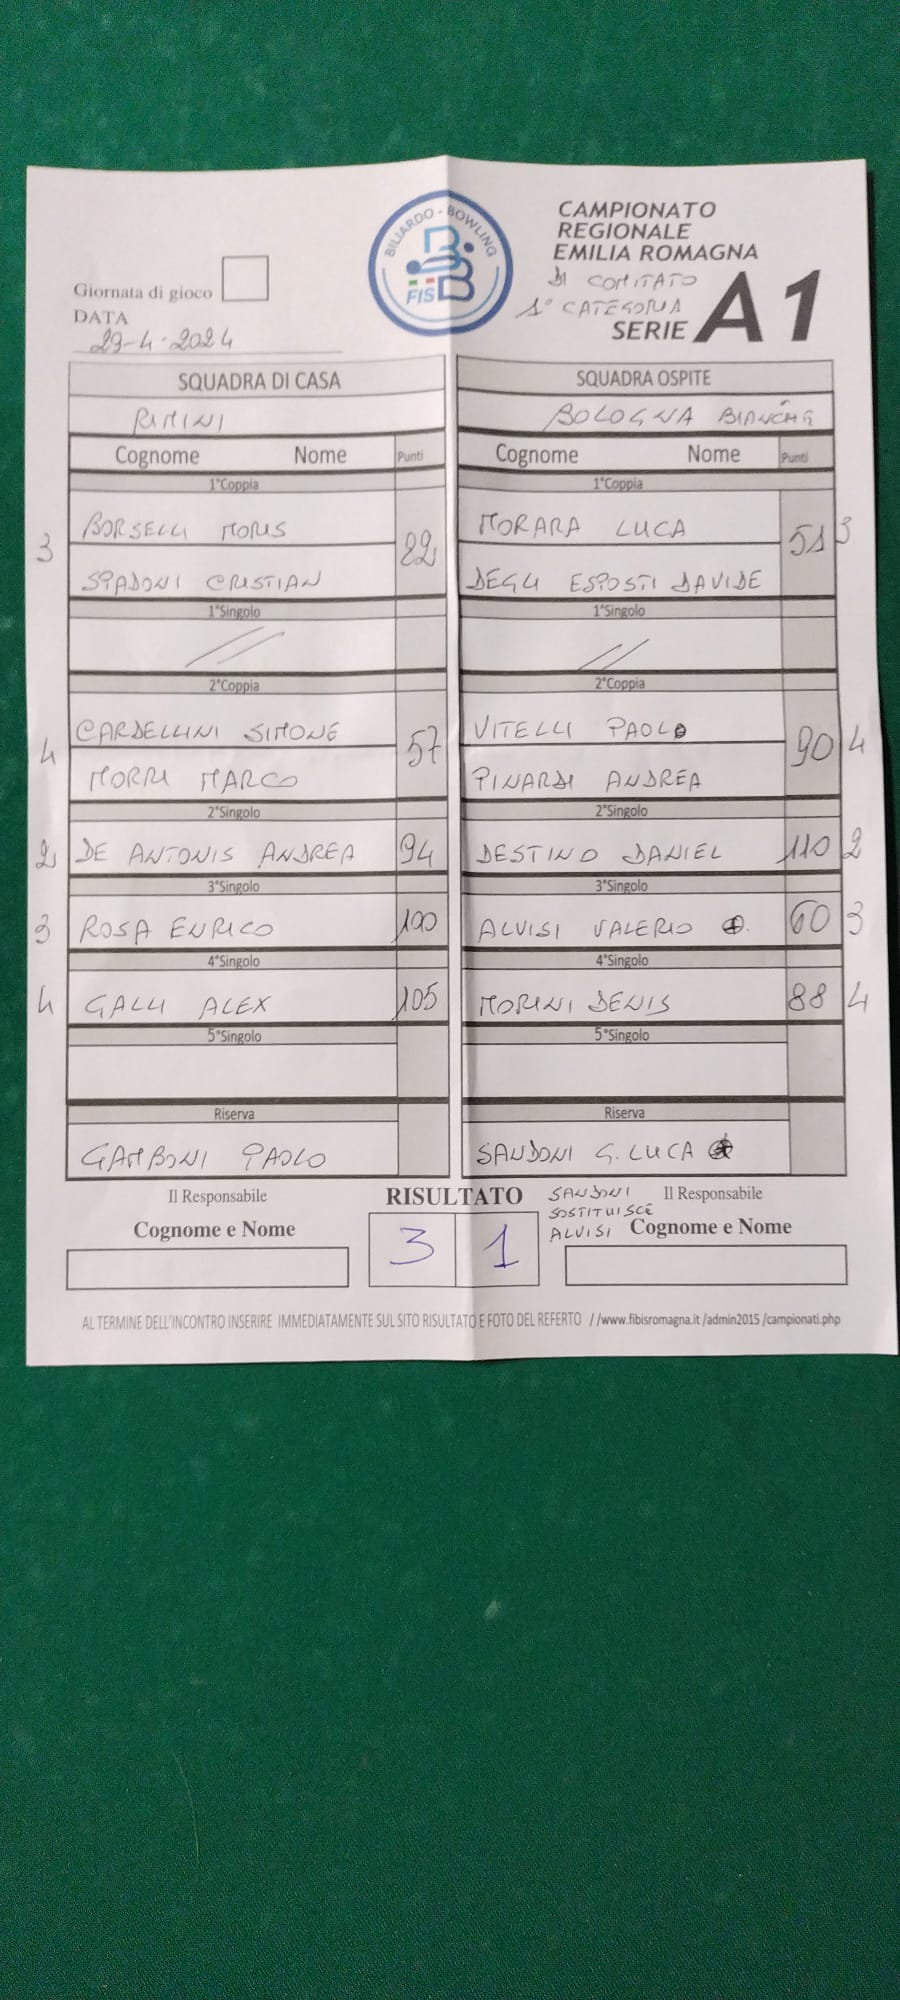 BILIARDO - BOWLING
FISBB
CAMPIONATO
REGIONALE
EMILIA ROMAGNA
DI COMITATO
1° CATEGORIA
SERIE A1
Giornata di gioco
DATA
29-4-2024
SQUADRA DI CASA SQUADRA OSPITE
RIMINI BOLOGNA BIANCHE
Cognome Nome Punti Cognome Nome Punti
1°Coppia 1°Coppia
3 BORSELLI MORIS 22 MORARA LUCA 51 3
SPADONI CRISTIAN DEGLI ESPOSTI DAVIDE
1°Singolo 1°Singolo
// //
2°Coppia 2°Coppia
4 CARDELLINI SIMONE 57 VITELLI PAOLO 90 4
MORRI MARCO PINARDI ANDREA
2°Singolo 2°Singolo
2 DE ANTONIS ANDREA 94 DESTINO DANIEL 110 2
3°Singolo 3°Singolo
3 ROSA ENRICO 100 ALVISI VALERIO 60 3
4°Singolo 4°Singolo
4 GALLI ALEX 105 MORINI DENIS 88 4
5°Singolo 5°Singolo
Riserva Riserva
GAMBONI PAOLO SANDONI G.LUCA
Il Responsabile RISULTATO SANDONI SOSTITUISCE ALVISI Il Responsabile
Cognome e Nome 3 1 Cognome e Nome
AL TERMINE DELL'INCONTRO INSERIRE IMMEDIATAMENTE SUL SITO RISULTATO E FOTO DEL REFERTO //www.fibisromagna.it /admin2015 /campionati.php